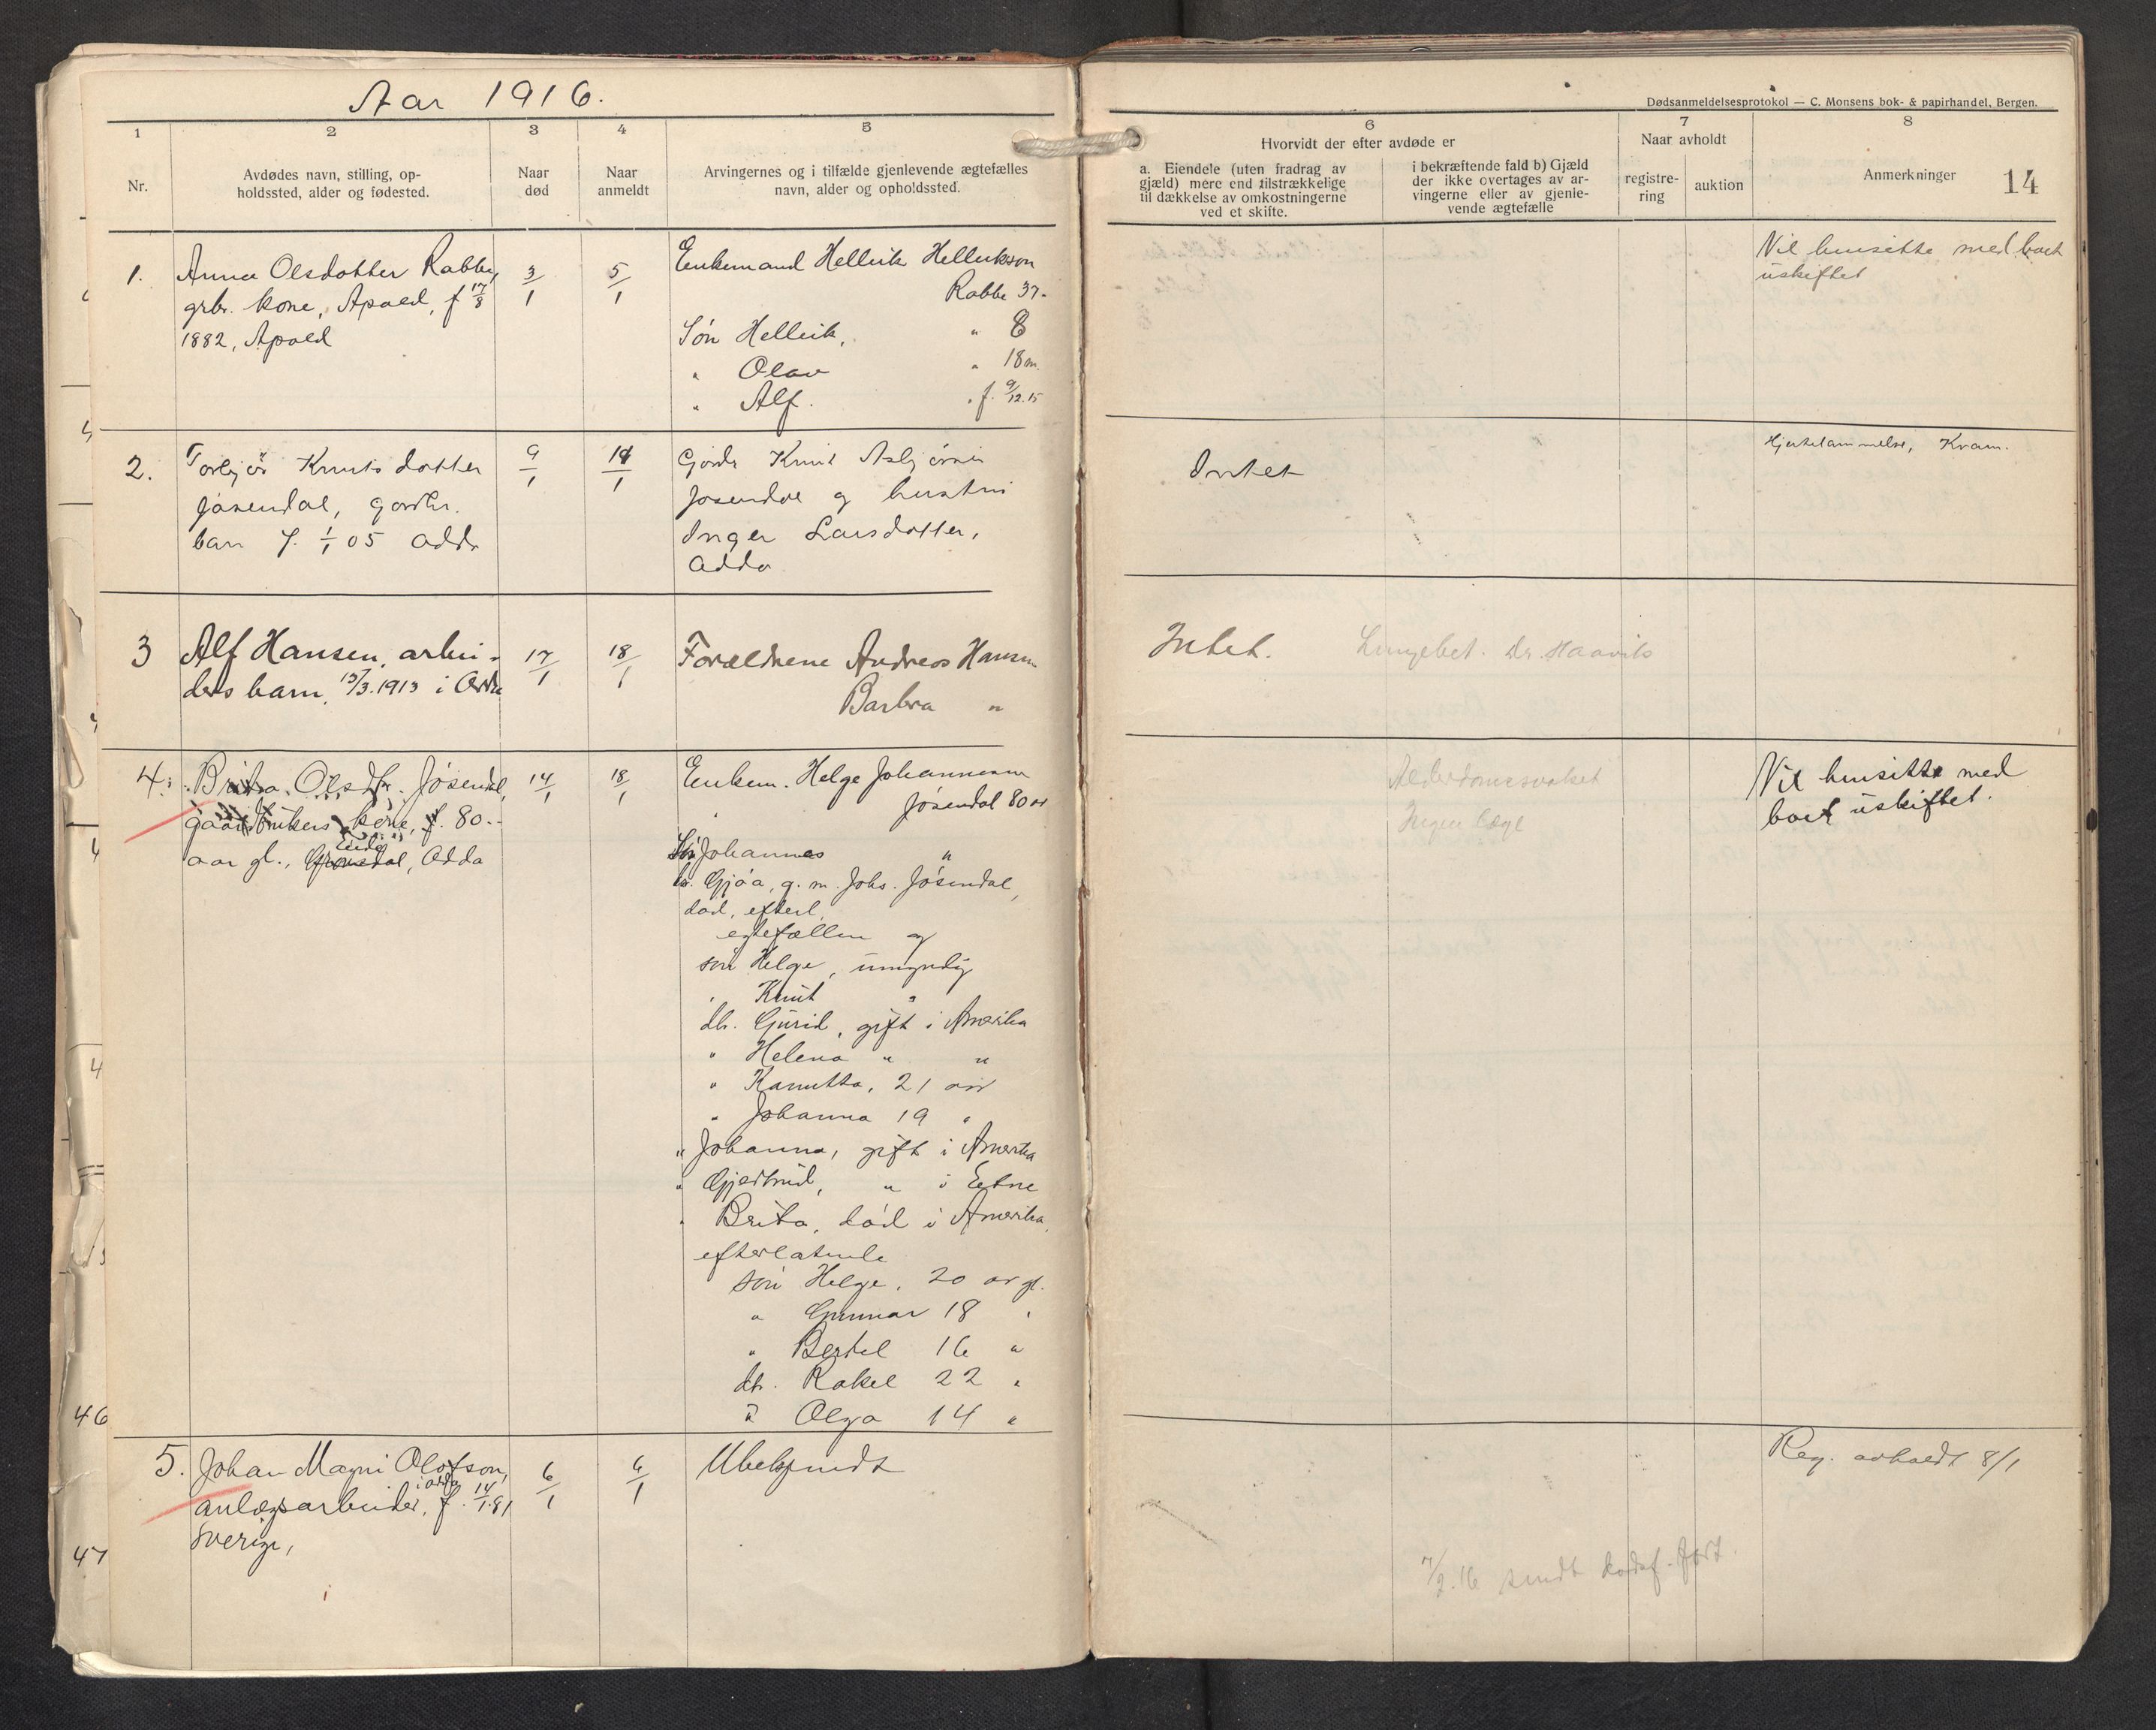 Aar 1916.
Dødsanmeldelsesprotokol — C. Monsens bok- & papirhandel, Bergen.
14
1
Nr.
2
Avdødes navn, stilling, op-
holdssted, alder og fødested.
3
Naar
død
4
Naar
anmeldt
5
Arvingernes og i tilfælde gjenlevende ægtefælles
navn, alder og opholdssted.
6
Hvorvidt der efter avdøde er
a. Eiendele (uten fradrag av
gjæld) mere end tilstrækkelige
til dækkelse av omkostningerne
ved et skifte.
i bekræftende fald b) Gjæld
der ikke overtages av ar-
vingerne eller av gjenle-
vende ægtefælle
7
Naar avholdt
registre-
ring
auktion
8
Anmerkninger
1.
Anna Olsdotter Rabbe,
grbr. kone, Apald, f 17/8
1882, Apald
3/1
5/1
Enkemand Hellik Hellikson
Rabbe 37-
Søn Hellik, " 8
" Olav " 18 m.
" Alf. " f. 9/12.15
Vil hensitte med boet
uskiftet
2.
Knutsdotter
Jøsendal, gardbr.
barn f. 1/1 05 Odda
9/1
1/1
Gardbr Knut Asbjørnsen
Jøsendal og hustru
Inger Larsdotter,
Odda
Intet
Hjertelammelse, Kvam.
3
Alf Hansen, arbei-
ders barn, 13/3.1913 i Odda
17/1
18/1
Forældrene Andreas Hansen
Barbra "
Intet. Lungebet. Dr. Haavik
4.
Brita Olsdtr. Jøsendal,
gaardbrukers kone, f. 80
aar gl., Eide, Odda
14/1
18/1
Enkem. Helge Johannesen
Jøsendal 80 år
Søn Johannes "
dtr. Gjøa, g. m. Johs. Jøsendal,
død, efterl.
egtefællen og
søn Helge, umyndig
" Knut "
dtr. Gurid, gift i Amerika
" Helena " "
" Kanutta, 21 aar
" Johanna 19 "
" Johanna, gift i Amerika
" Gjertrud, " i Etne
" Brita, død i Amerika,
efterlatende
søn Helge, 20 ar gl.
" Gunnar 18 "
" Bertel 16 "
dtr. Rakel 22 "
" Olga 14 "
Alderdomssvakhet
Ingen læge
Vil hensitte med
boet uskiftet.
5.
Johan Magni Olofson,
anlægsarbeider, i Odda f. 14/1.81
Sverige,
6/1
6/1
Ubekjendt
Reg. avholdt 8/1
7/2.16 sendt
46
47